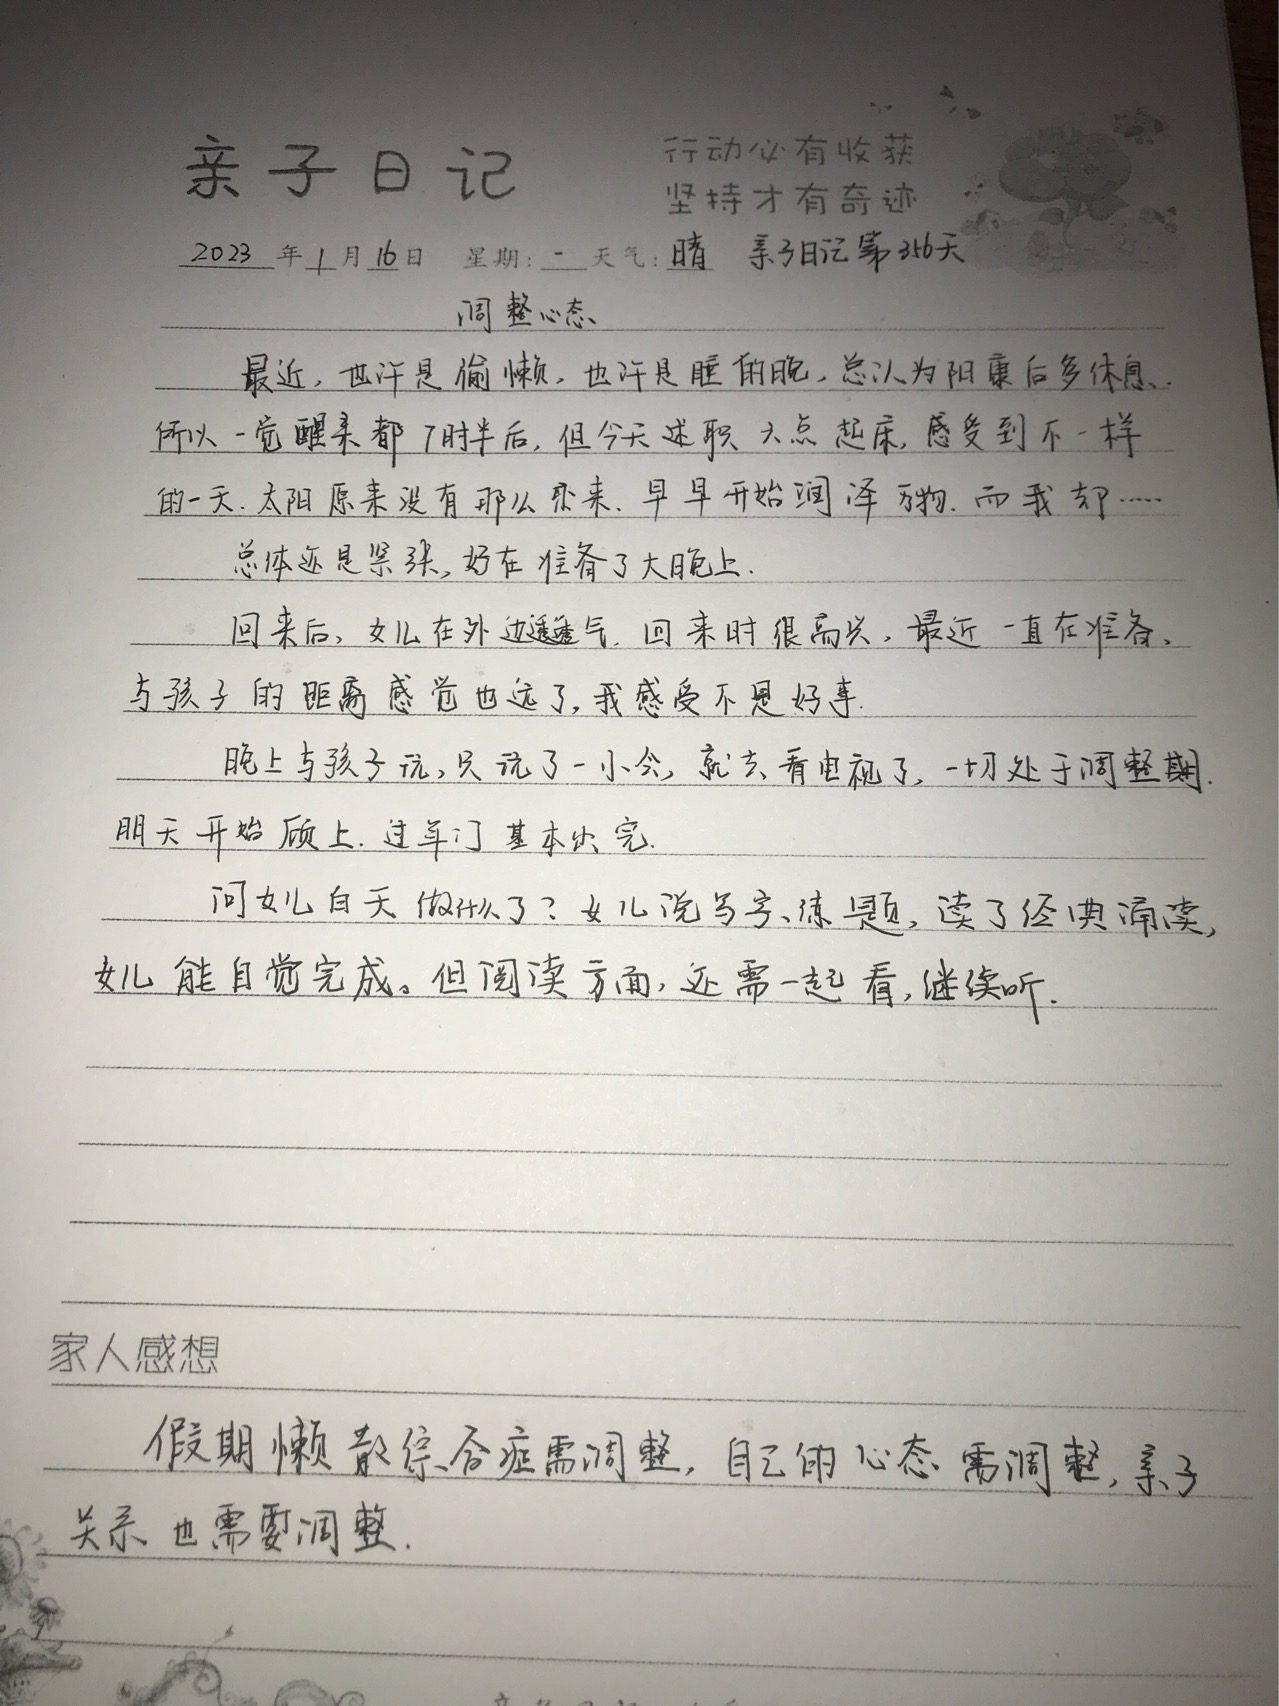 亲子日记
行动必有收获
坚持才有奇迹
2023年1月16日 星期:一 天气:晴 亲子日记第356天
调整心态
最近,也许是偷懒,也许是睡的晚,总认为阳康后多休息、
所以一觉醒来都7时半后,但今天述职六点起床,感受到不一样
的一天.太阳原来没有那么晚来.早早开始润泽万物.而我却……
总体还是紧张,好在准备了大晚上.
回来后,女儿在外边透透气.回来时很高兴,最近一直在准备、
与孩子的距离感觉也远了,我感受不是好事.
晚上与孩子玩,只玩了一小会,就去看电视了,一切处于调整期.
明天开始顾上.过年门基本出完.
问女儿白天做什么了?女儿说写字、练题,读了经典诵读,
女儿能自觉完成。但阅读方面,还需一起看,继续听.
家人感想
假期懒散综合症需调整,自己的心态需调整,亲子
关系也需要调整.